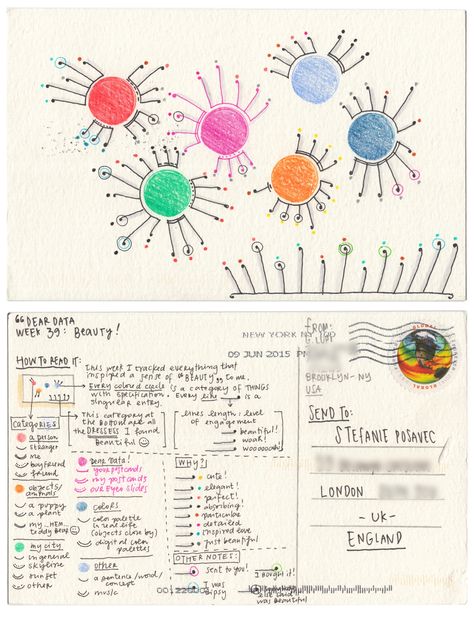 "DEAR DATA
WEEK 39: Beauty!
HOW TO READ IT:
This week I tracked everything that
inspired a sense of "BEAUTY" to me.
Every colored circle is a category of THINGS
with specification. Every line is a
singular entry.
This category at
the BOTTOM are all
the DRESSES I found
Beautiful
lines length: level of
engagement
beautiful!
woah!
wooooooah!
CATEGORIES
a person
stranger
me
boyfriend
friend
objects/
animals
a puppy
a plant
my
teddy bear
my city
in general
skyline
sunset
other
Dear Data!
your postcards
my postcards
our Eyeo slides
colors
color palette
in real life
(objects close by)
digital color
palettes
other
a sentence/word/
concept
music
WHY?
cute!
elegant!
perfect!
absorbing!
particular
detailed
inspired love
just beautiful
OTHER NOTES:
sent to you!
I bought it!
I was
tipsy
was beautiful
NEW YORK NY 100
09 JUN 2015 PM
FROM:
BROOKLYN - NY
USA
GLOBAL
SEND TO:
STEFANIE POSAVEC
LONDON
- UK -
ENGLAND